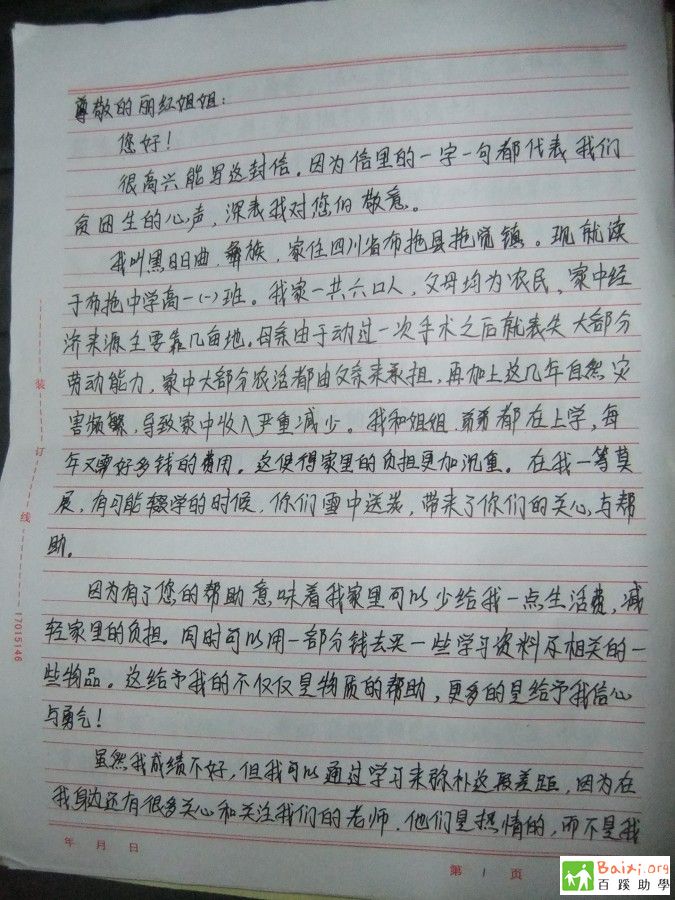 尊敬的丽红姐姐：
您好！
很高兴能写这封信。因为信里的一字一句都代表我们
贫困生的心声，深表我对您的敬意。
我叫黑日日曲，彝族，家住四川省布拖县拖觉镇。现就读
于布拖中学高一(一)班。我家一共六口人，父母均为农民，家中经
济来源主要靠几亩地。母亲由于动过一次手术之后就丧失大部分
劳动能力，家中大部分农活都由父亲来承担，再加上这几年自然灾
害频繁，导致家中收入严重减少。我和姐姐、弟弟都在上学，每
年又要好多钱的费用。这使得家里的负担更加沉重。在我一筹莫
展，有可能辍学的时候，你们雪中送炭，带来了你们的关心与帮
助。
因为有了您的帮助意味着我家里可以少给我一点生活费，减
轻家里的负担。同时可以用一部分钱去买一些学习资料及相关的一
些物品。这给予我的不仅仅是物质的帮助，更多的是给予我信心
与勇气！
虽然我成绩不好，但我可以通过学习来弥补这段差距，因为在
我身边还有很多关心和关注我们的老师，他们是热情的，而不是我
年 月 日
第 1 页
装 订 线
17015146
Baixi.org
百蹊助學